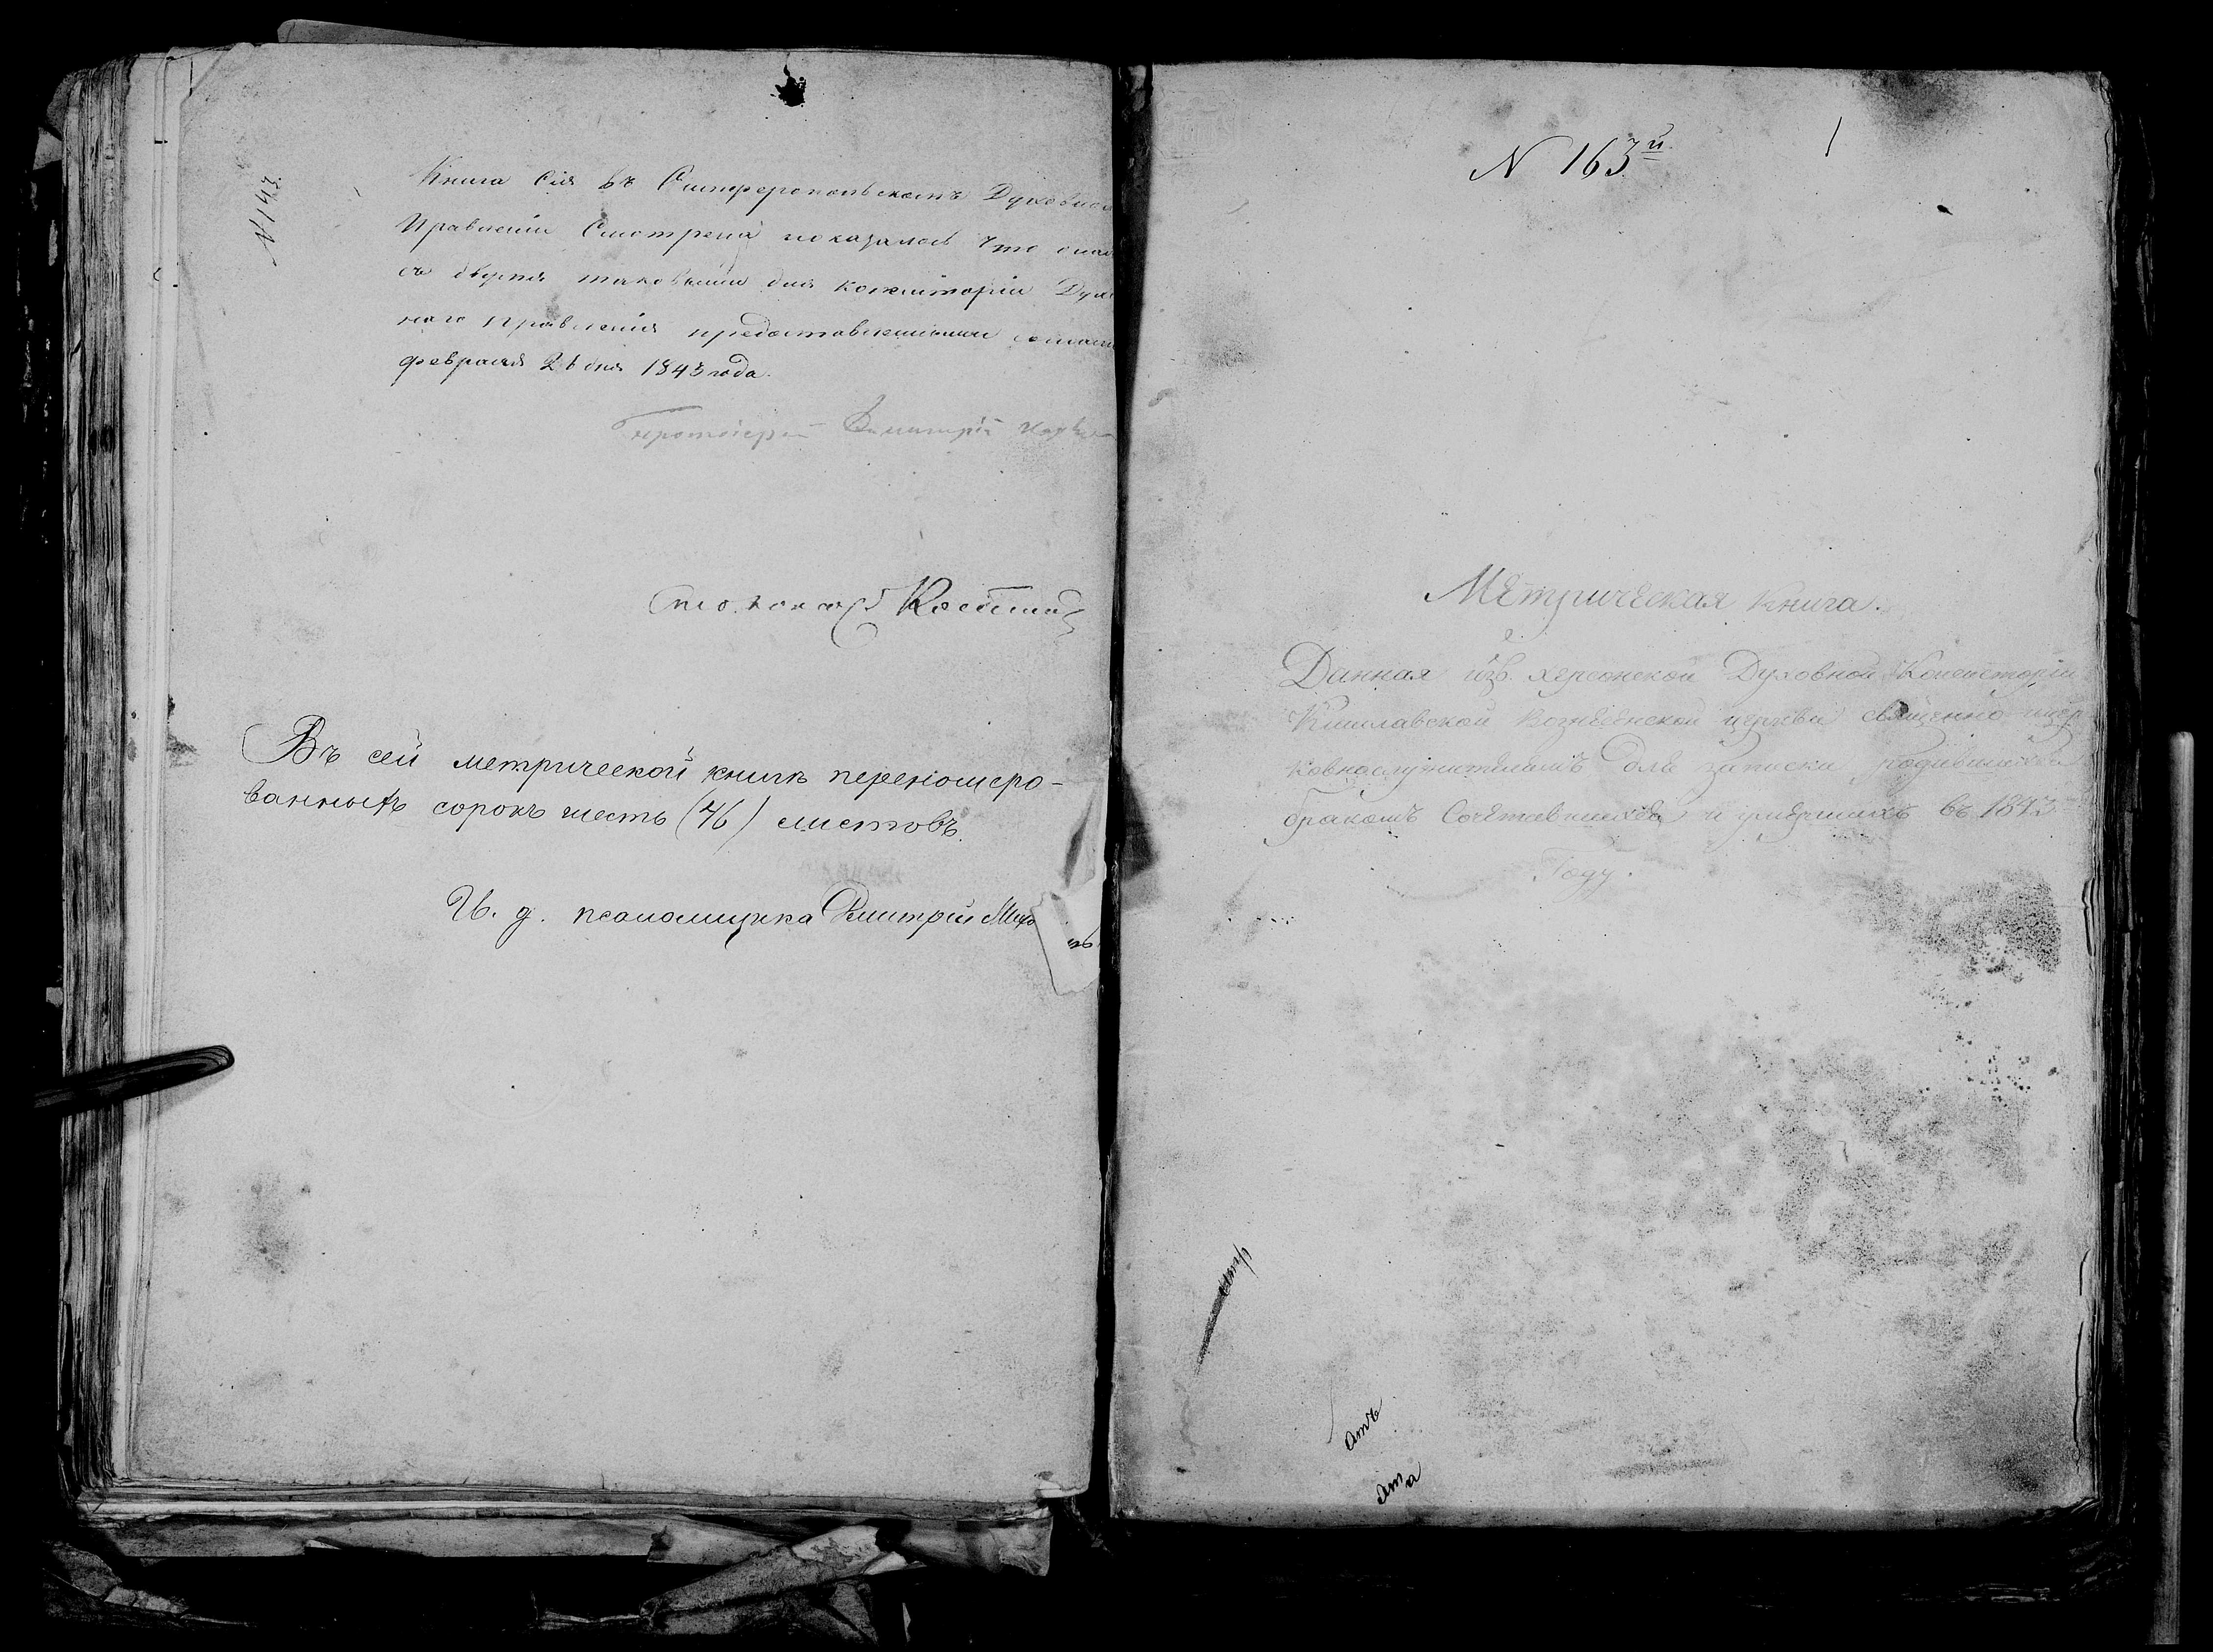 N 143.
Книга Сія въ Симферопольскомъ Духовном
Правленіи Смотрена и оказалось что она
съ двумя таковыми для консисторіи Духо
наго правленія предоставленными
февраля 26 дня 1843 года.
Протоіерей Димитрій
Столонач
Въ сей метрической книгѣ перенюмеро-
ванныхъ сорокъ шесть (46) листовъ.
И. д. псаломщика Дмитрій
N 163й
Метрическая книга.
Данная изъ Херсонской Духовной Консисторіи
Кишлавской Вознесенской церкви священно церк
ковнослужителямъ для записки родившихся
бракомъ Сочетавшихся и умершихъ въ 1843
Году.